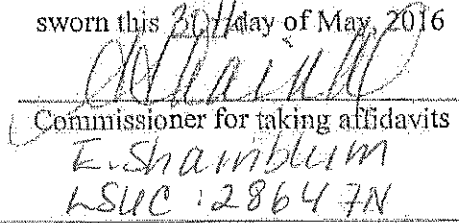 sworn this 30th day of May, 2016
Commissioner for taking affidavits
E. Shamblum
LSUC : 28647N